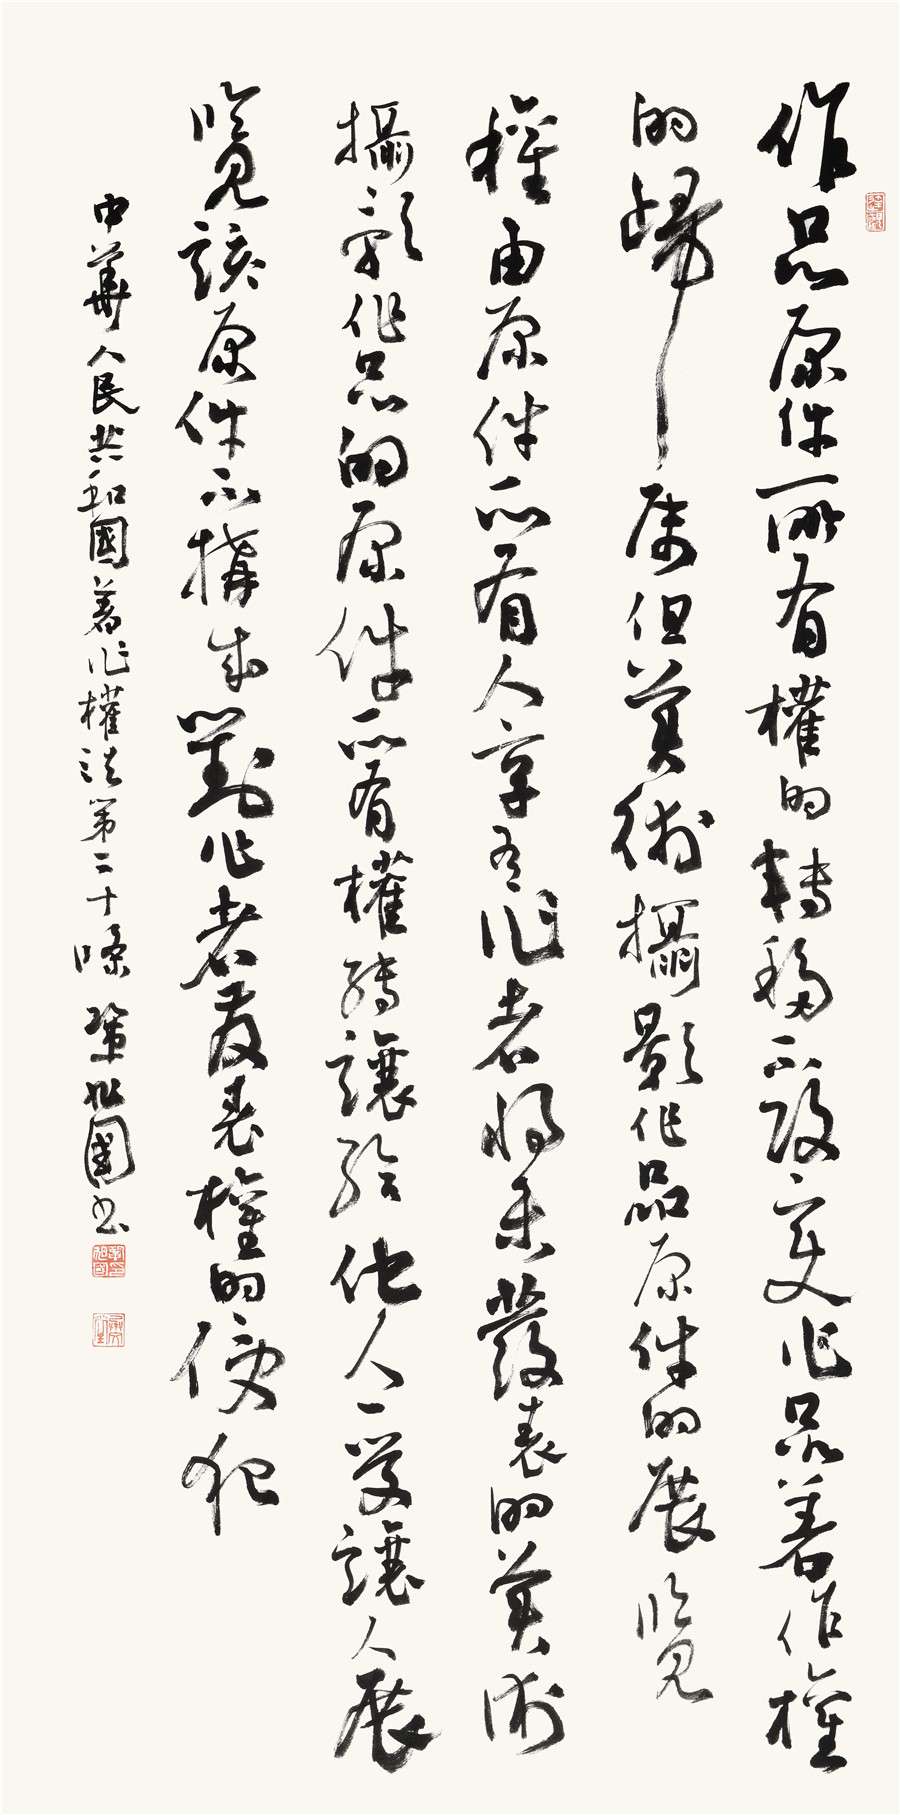 作品原件所有權的轉移不改變作品著作權
的歸屬但美術攝影作品原件的展覽
權由原件所有人享有作者將未發表的美術
攝影作品的原件所有權轉讓給他人受讓人展
覽該原件不構成對作者發表權的侵犯
中華人民共和國著作權法第二十條 國書